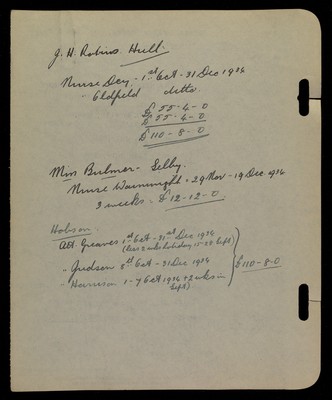 J. H. Robins. Hull.
Nurse Dey - 1st Oct - 31 Dec 1934
" Oldfield ditto.
£55-4-0
£55-4-0
£110-8-0
Miss Bulmer - Selby.
Nurse Wainwright, 29 Nov - 19 Dec 1934
3 weeks - £12-12-0
Hobson.
Att. Greaves 1st Oct - 31st Dec 1934
(less 2 wks holiday 15-28 Sept)
" Judson 8th Oct - 31 Dec 1934
" Harrison 1-7 Oct 1934 + 2 wks in Sept)
£110-8-0